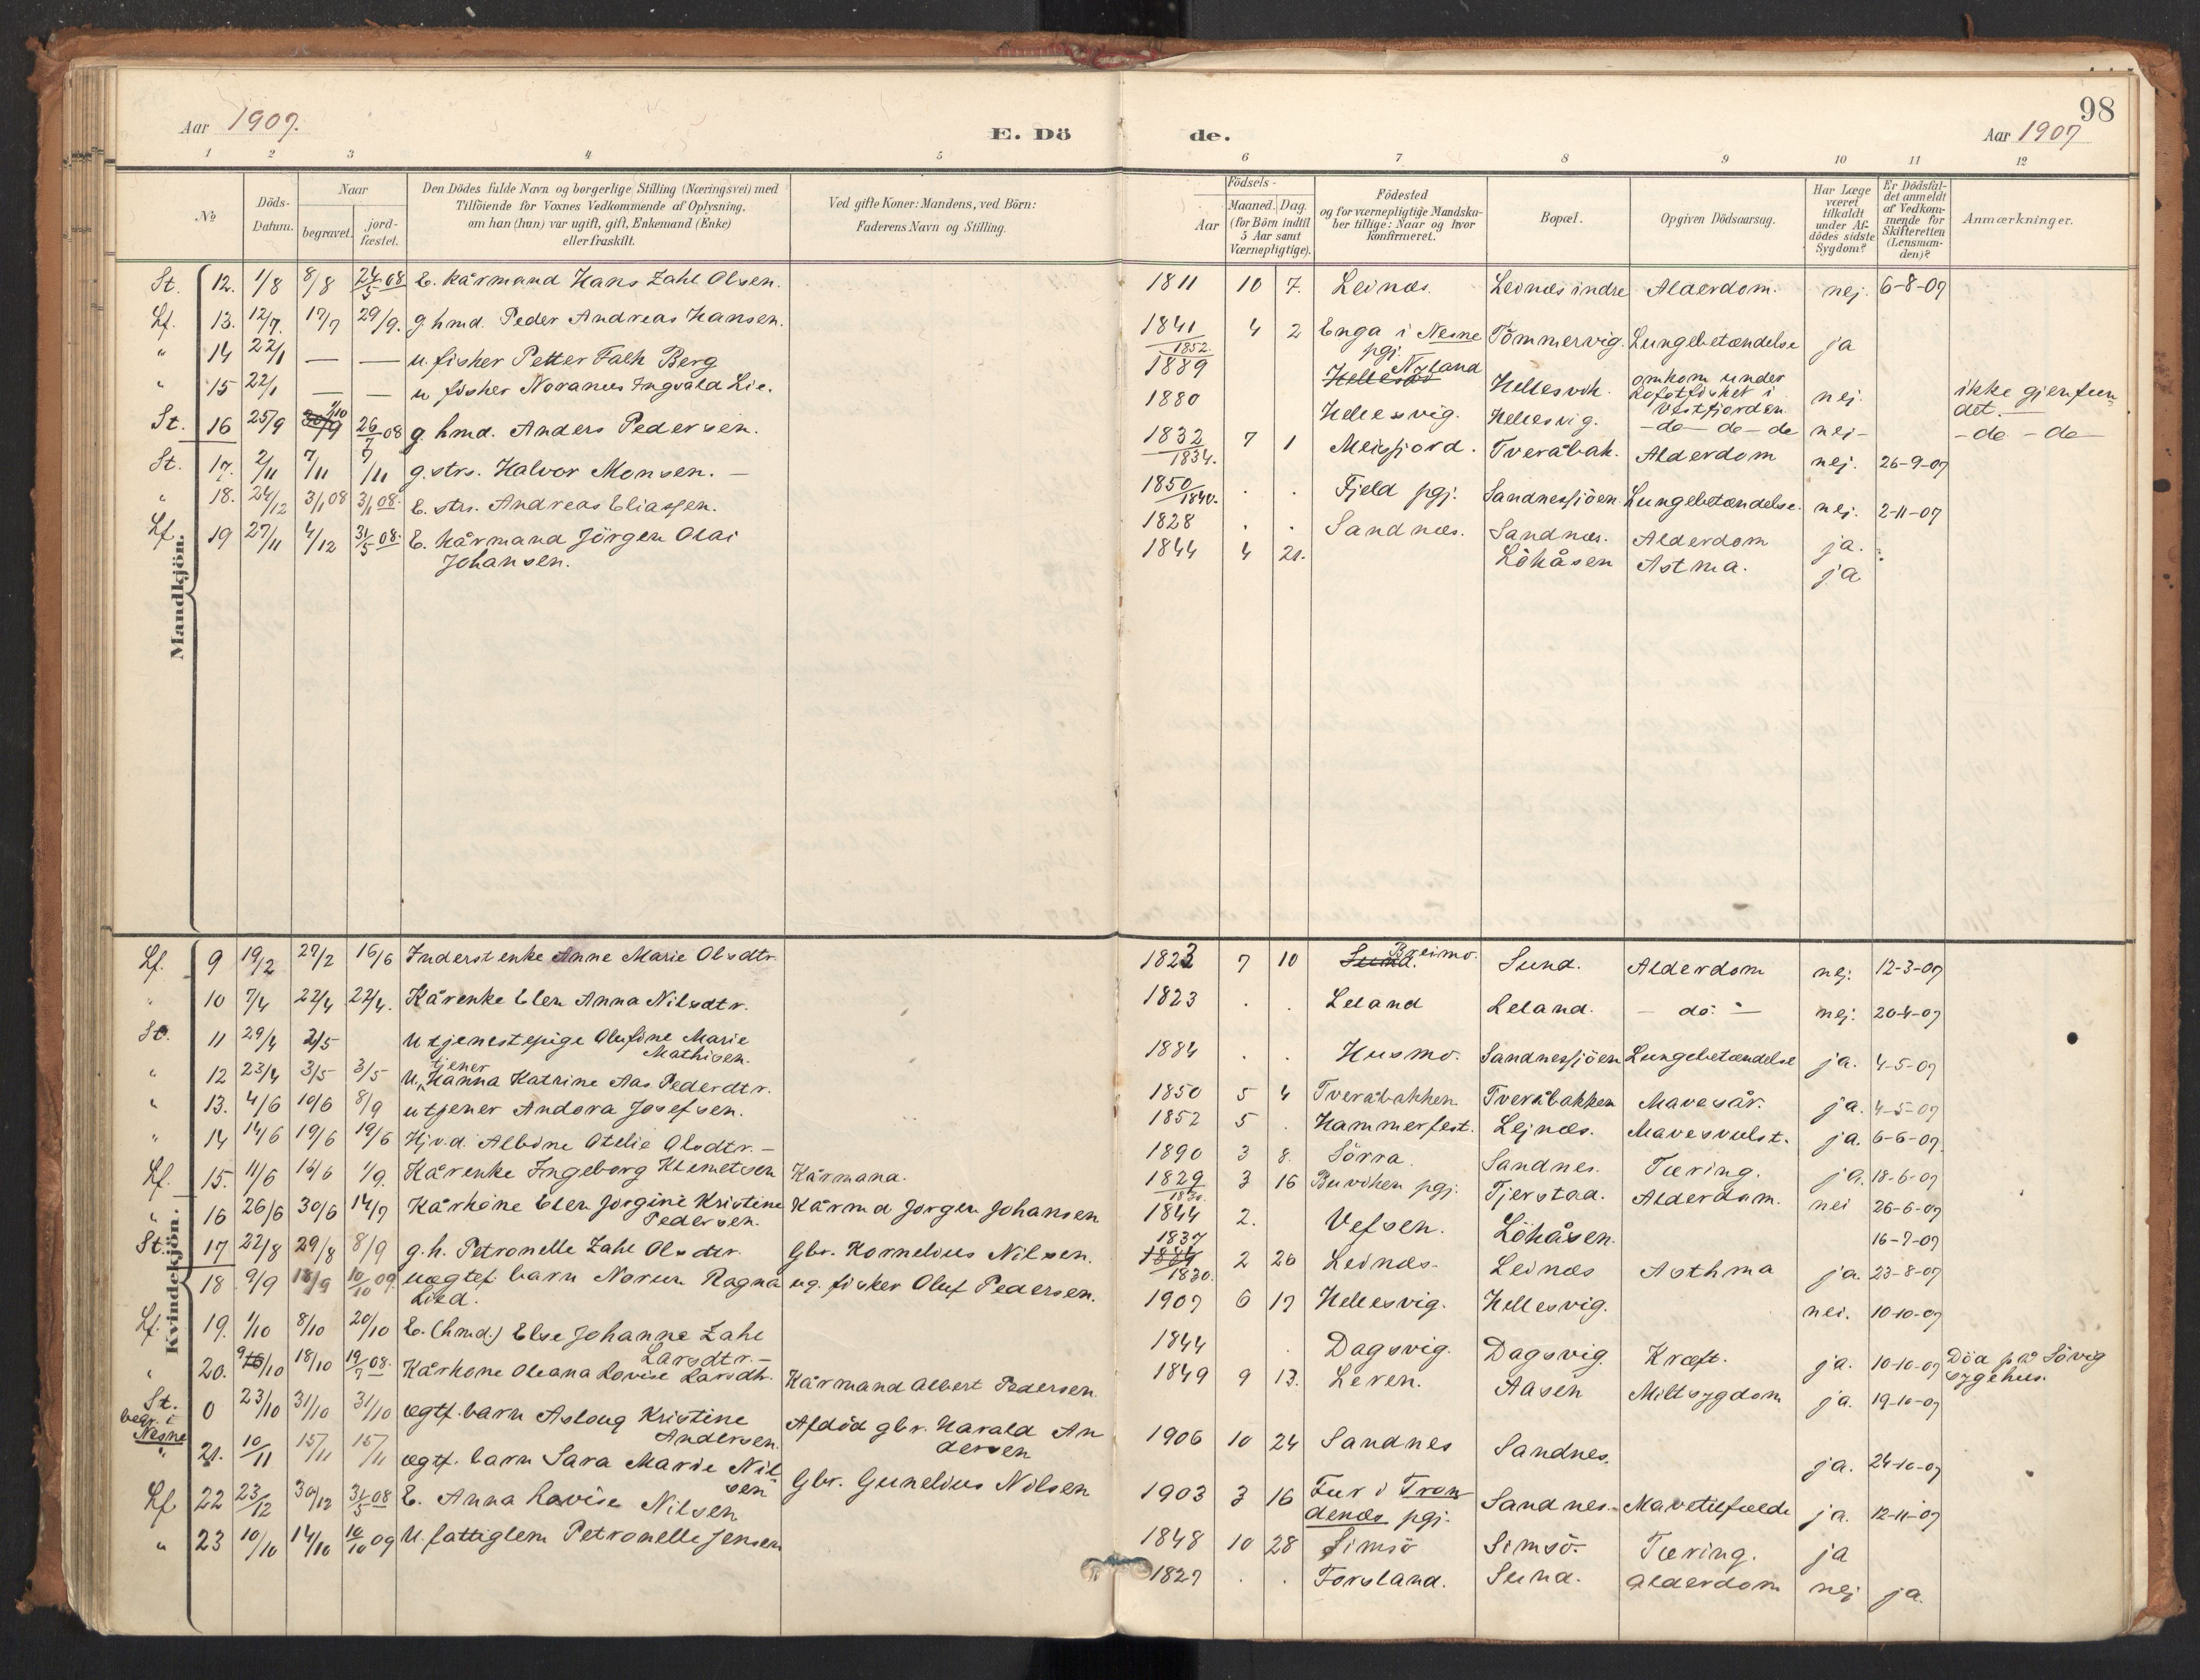 98
Aar 1907.
E. Dö de.
Aar 1907
1 2 3 4 5 6 7 8 9 10 11 12
№
Döds-Datum.
Naar
begravet.
jord-fæstet.
Den Dödes fulde Navn og borgerlige Stilling (Næringsvei) med
Tilföiende for Voxnes Vedkommende af Oplysning,
om han (hun) var ugift, gift, Enkemand (Enke)
eller fraskilt.
Ved gifte Koner: Mandens, ved Börn:
Faderens Navn og Stilling.
Födsels-
Aar
Maaned. Dag.
(for Börn indtil
5 Aar samt
Værnepligtige).
Födested
og for værnepligtige Mandska-
ber tillige: Naar og hvor
konfirmeret.
Bopæl.
Opgiven Dödsaarsag.
Har Læge
været
tilkaldt
under Af-
dödes sidste
Sygdom?
Er Dödsfal-
det anmeldt
af Vedkom-
mende for
Skifteretten
(Lensman-
den)?
Anmærkninger.
Mandkjön.
St. 12. 1/8 8/8 24/5 08 E. kårmand Hans Zahl Olsen. 1811 10 7. Leinæs. Leinæs indre Alderdom. nej. 6-8-07
Lf. 13. 12/7. 17/7 29/9. g hmd. Peder Andreas Hansen. 1841 4 2 Enga i Nesne Tömmervig. Lungebetændelse ja
1852. pgj.
" 14 22/1 — — u. fisker Petter Falch Berg 1889 Hellesvi Nyland Hellesvik. omkom under Lofotfisket i Vestfjorden nej. ikke gjenfun det. —
" 15 22/1 — — u fisker Noranus Ingvald Lie. 1880 Hellesvig. Hellesvig. - do - do - do nei- - do - do -
St. 16 25/9 30/9 1/10 26/7 08 g. hmd. Anders Pedersen. 1832 7 1 Meisfjord. Tveråbak. Alderdom nej. 26-9-07
1834.
St. 17. 2/11 7/11 7/11 g. strs. Halvor Monsen. — 1850 . . Fjeld pgj. Sandnessjöen. Lungebetændelse. nej. 2-11-07
1840.
" 18. 24/12 3/1 08 3/1 08. E. strs. Andreas Eliassen. 1828 . . Sandnæs. Sandnæs. Alderdom ja.
Lf. 19 27/11 4/12 31/5 08. E. Kårmand Jörgen Olai 1844 4 21. Löhåsen Astma. ja
Johansen.
Kvindekjön.
Lf. 9 19/2 27/2 16/6 Inderst enke Anne Marie Olsdtr. 1823 7 10 Sund. Breimo. Sund. Alderdom nej. 12-3-07
" 10 7/4 22/4 22/4. Kårenke Elen Anna Nilsdtr. 1823 . . Leland Leland. - do. - nej. 20-4-07
St. 11 29/4 2/5 U tjenestepige Olufine Marie 1884 . . Husmo. Sandnessjöen Lungebetændelse ja. 4-5-07
Mathisen.
" 12 23/4 3/5 3/5 U. tjener Hanna Katrine Aas Pederdtr. 1850 5 4 Tveråbakken Tveråbakken Mavesår. ja. 4-5-07
" 13. 4/6 10/6 8/9 u tjener Andora Josefsen. 1852 5 . Hammerfest. Lejnæs. Mavesvulst. ja. 6-6-07
" 14 14/6 19/6 19/6 Hjv.d. Albine Otelie Olsdtr. — 1890 3 8. Sörra. Sandnes. Tæring. ja. 18-6-07
Lf. 15. 11/6 16/6 1/9. Kårenke Ingeborg Klemetsen Kårmand. 1829 3 16 Buviken pgj. Tjerstad. Alderdom. nei 26-6-07
1830.
" 16 26/6 30/6 14/7 Kårkone Elen Jorgine Kristine Kårmd Jorgen Johansen 1844 2. Vefsen. Löhåsen. 16-7-07
Pedersen.
St. 17 22/8 29/8 8/9 g.h. Petronelle Zahl Olsdtr. Gbr. Kornelius Nilsen. 1837 2 26 Leinæs. Leinæs Asthma ja. 23-8-07
1830.
18 9/9 15/9 10/10 09 uægtef. barn Norun Ragna ug. fisker Oluf Pedersen. 1907 6 17 Hellesvig. Hellesvig. nei. 10-10-07
Lied.
Lf. 19. 1/10 8/10 20/10 E. (hmd.) Else Johanne Zahl 1844 . Dagsvig. Dagsvig. Kræft. ja. 10-10-07 Döa på Sövig sygehus.
Larsdtr. —
" 20. 9/10 18/10 19/7 08. Kårkone Oleana Lovise Larsdtr. Kårmand Albert Pedersen. 1849 9 13. Leren. Aasen Miltsygdom ja. 19-10-07
St. begr. i Nesne 0 23/10 31/10 31/10 ægtf. barn Aslaug Kristine Afdöd gbr. Harald An 1906 10 24 Sandnes Sandnes. ja. 24-10-07
Andersen. dersen
" 21. 10/11 15/11 15/11 ægtf. barn Sara Marie Nil Gbr. Gunelius Nilsen 1903 3 16 Fur i Tron Sandnes. Mavetilfælde ja. 12-11-07
sen denæs pgj.
Lf 22 23/12 30/12 31/5 08 E. Anna Lovise Nilsen 1848 10 28 Simsö Simsö. Tæring. ja
" 23 10/10 14/10 10/10 09 U. fattiglem Petronelle Jensen 1827 . . Forsland. Sund. Alderdom nej ja.